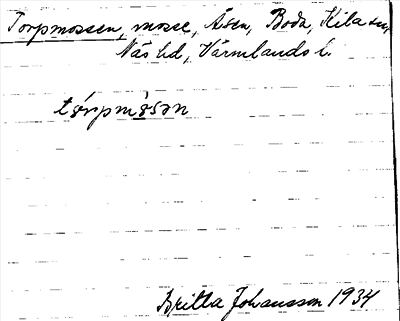 Torpmossen, mosse, Åsen, Boda, Kila sn,
Näs hd, Värmlands l.
tórpmòsən
Britta Johansson 1934